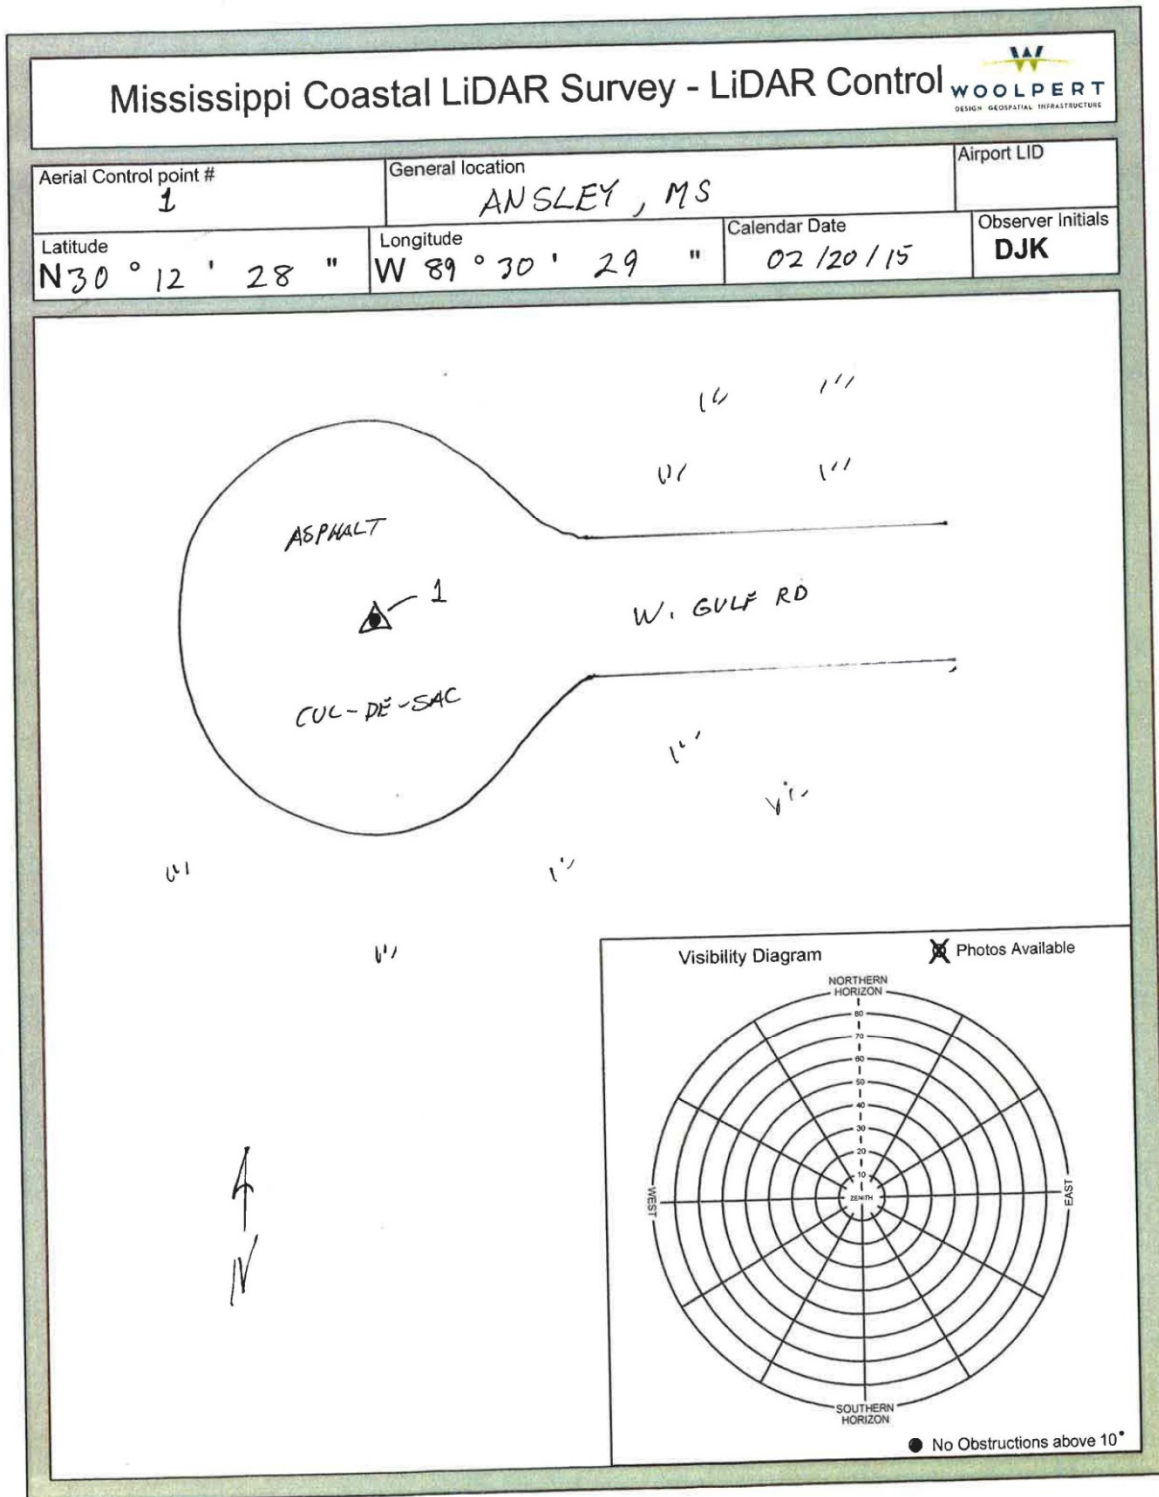 Mississippi Coastal LiDAR Survey - LiDAR Control
W
WOOLPERT
DESIGN GEOSPATIAL INFRASTRUCTURE
Aerial Control point #
1
General location
ANSLEY, MS
Airport LID
Latitude
N 30 ° 12 ' 28 "
Longitude
W 89 ° 30 ' 29 "
Calendar Date
02/20/15
Observer Initials
DJK
ASPHALT
1
W. GULF RD
CUL-DE-SAC
Visibility Diagram
Photos Available
NORTHERN
HORIZON
80
70
60
50
40
30
20
10
ZENITH
WEST
EAST
SOUTHERN
HORIZON
No Obstructions above 10°
N